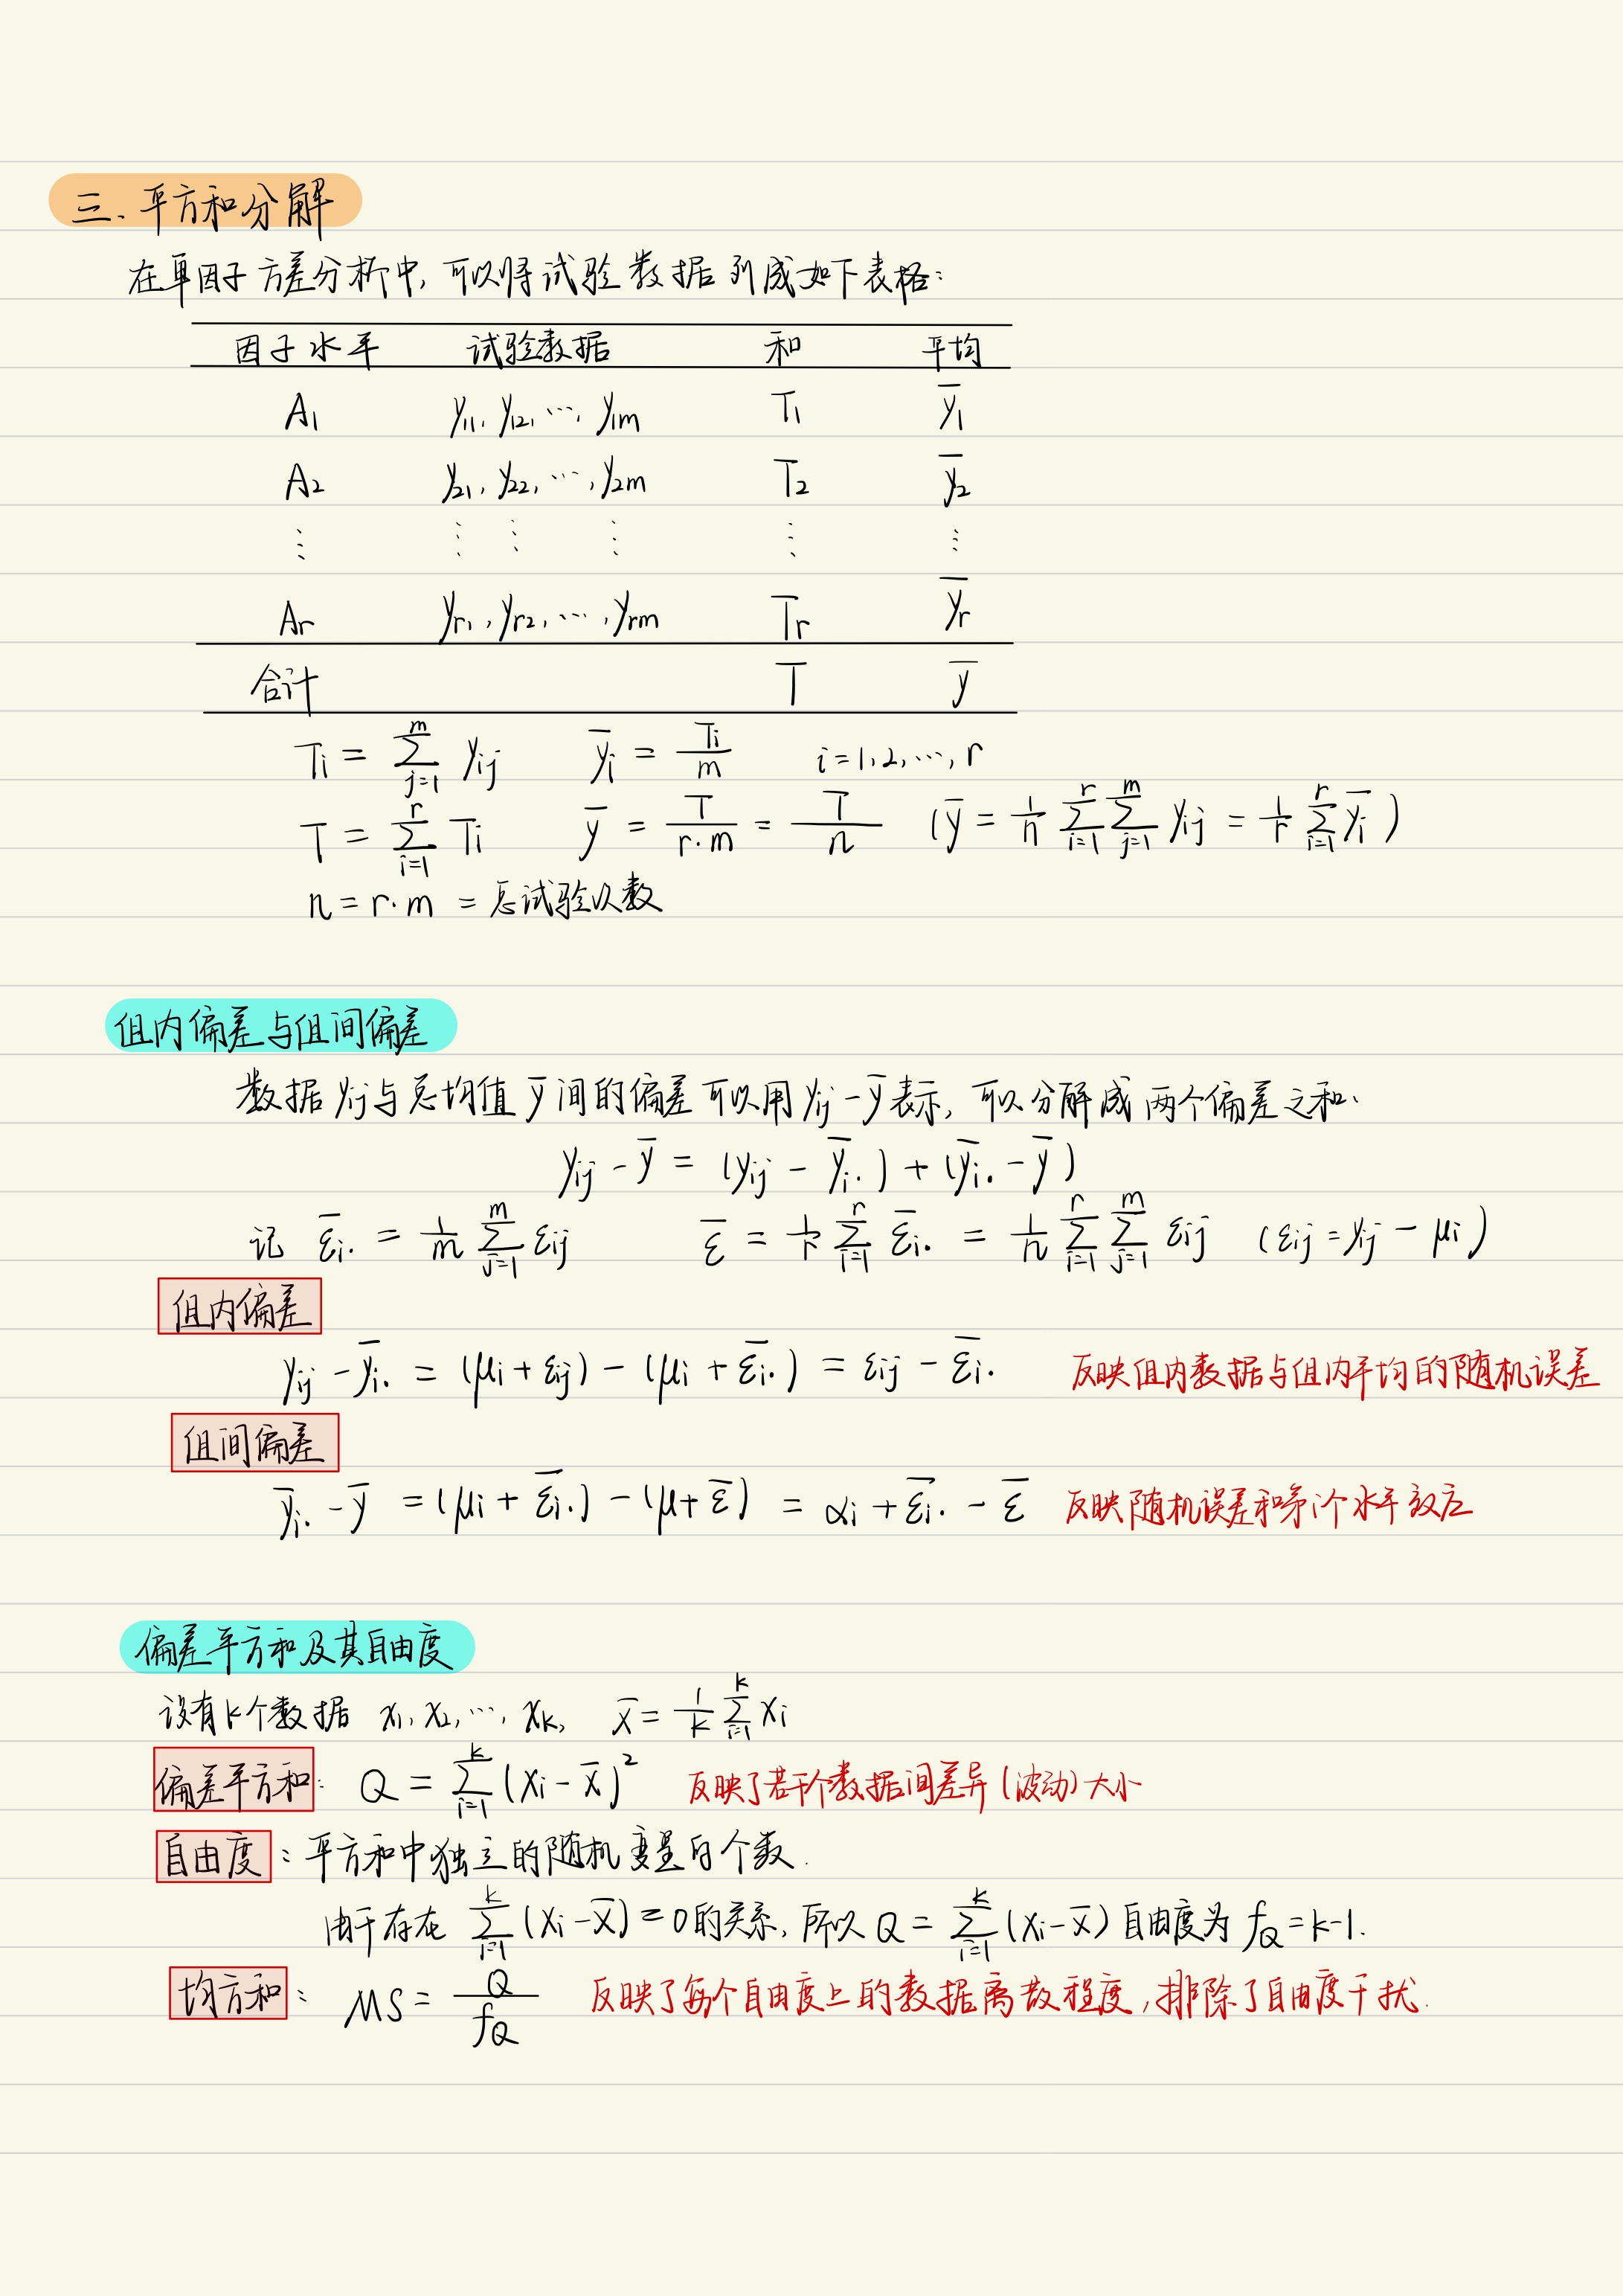 三、平方和分解
在单因子方差分析中, 可以将试验数据列成如下表格:
因子水平 试验数据 和 平均
A₁ y₁₁, y₁₂, ⋯, y₁ₘ T₁ ȳ₁
A₂ y₂₁, y₂₂, ⋯, y₂ₘ T₂ ȳ₂
⋮ ⋮ ⋮ ⋮ ⋮ ⋮
Aᵣ yᵣ₁, yᵣ₂, ⋯, yᵣₘ Tᵣ ȳᵣ
合计 T ȳ
Tᵢ = ∑_{j=1}^{m} yᵢⱼ ȳᵢ = Tᵢ/m i=1,2,⋯,r
T = ∑_{i=1}^{r} Tᵢ ȳ = T/(r·m) = T/n (ȳ = 1/n ∑_{i=1}^{r} ∑_{j=1}^{m} yᵢⱼ = 1/r ∑_{i=1}^{r} ȳᵢ)
n = r·m = 总试验次数
组内偏差与组间偏差
数据 yᵢⱼ 与总均值 ȳ 间的偏差可以用 yᵢⱼ - ȳ 表示, 可以分解成两个偏差之和.
yᵢⱼ - ȳ = (yᵢⱼ - ȳᵢ.) + (ȳᵢ. - ȳ)
记 ε̄ᵢ. = 1/m ∑_{j=1}^{m} εᵢⱼ ε̄ = 1/r ∑_{i=1}^{r} ε̄ᵢ. = 1/n ∑_{i=1}^{r} ∑_{j=1}^{m} εᵢⱼ (εᵢⱼ = yᵢⱼ - μᵢ)
组内偏差
yᵢⱼ - ȳᵢ. = (μᵢ + εᵢⱼ) - (μᵢ + ε̄ᵢ.) = εᵢⱼ - ε̄ᵢ. 反映组内数据与组内平均的随机误差
组间偏差
ȳᵢ. - ȳ = (μᵢ + ε̄ᵢ.) - (μ + ε̄) = αᵢ + ε̄ᵢ. - ε̄ 反映随机误差和第i个水平效应
偏差平方和及其自由度
设有k个数据 x₁, x₂, ⋯, xₖ, x̄ = 1/k ∑_{i=1}^{k} xᵢ
偏差平方和: Q = ∑_{i=1}^{k} (xᵢ - x̄)² 反映了若干个数据间差异(波动)大小
自由度: 平方和中独立的随机变量的个数.
由于存在 ∑_{i=1}^{k} (xᵢ - x̄) = 0 的关系, 所以 Q = ∑_{i=1}^{k} (xᵢ - x̄) 自由度为 f_Q = k-1.
均方和: MS = Q/f_Q 反映了每个自由度上的数据离散程度, 排除了自由度干扰.